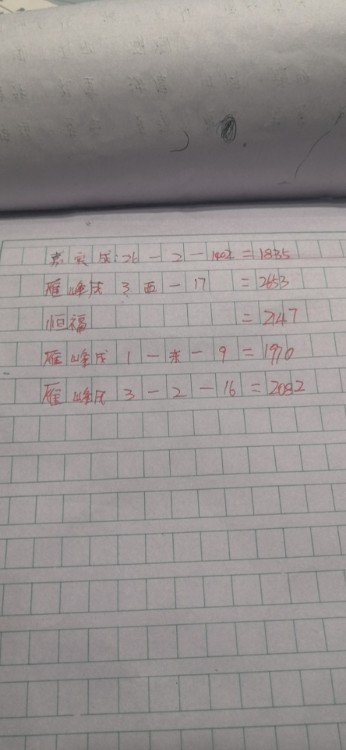 东 城:26-2-1402=1835
雁峰戌 3 西-17 =2653
恒福 =2147
雁峰戌 1-东-9=1970
雁峰戌 3-2-16=2092